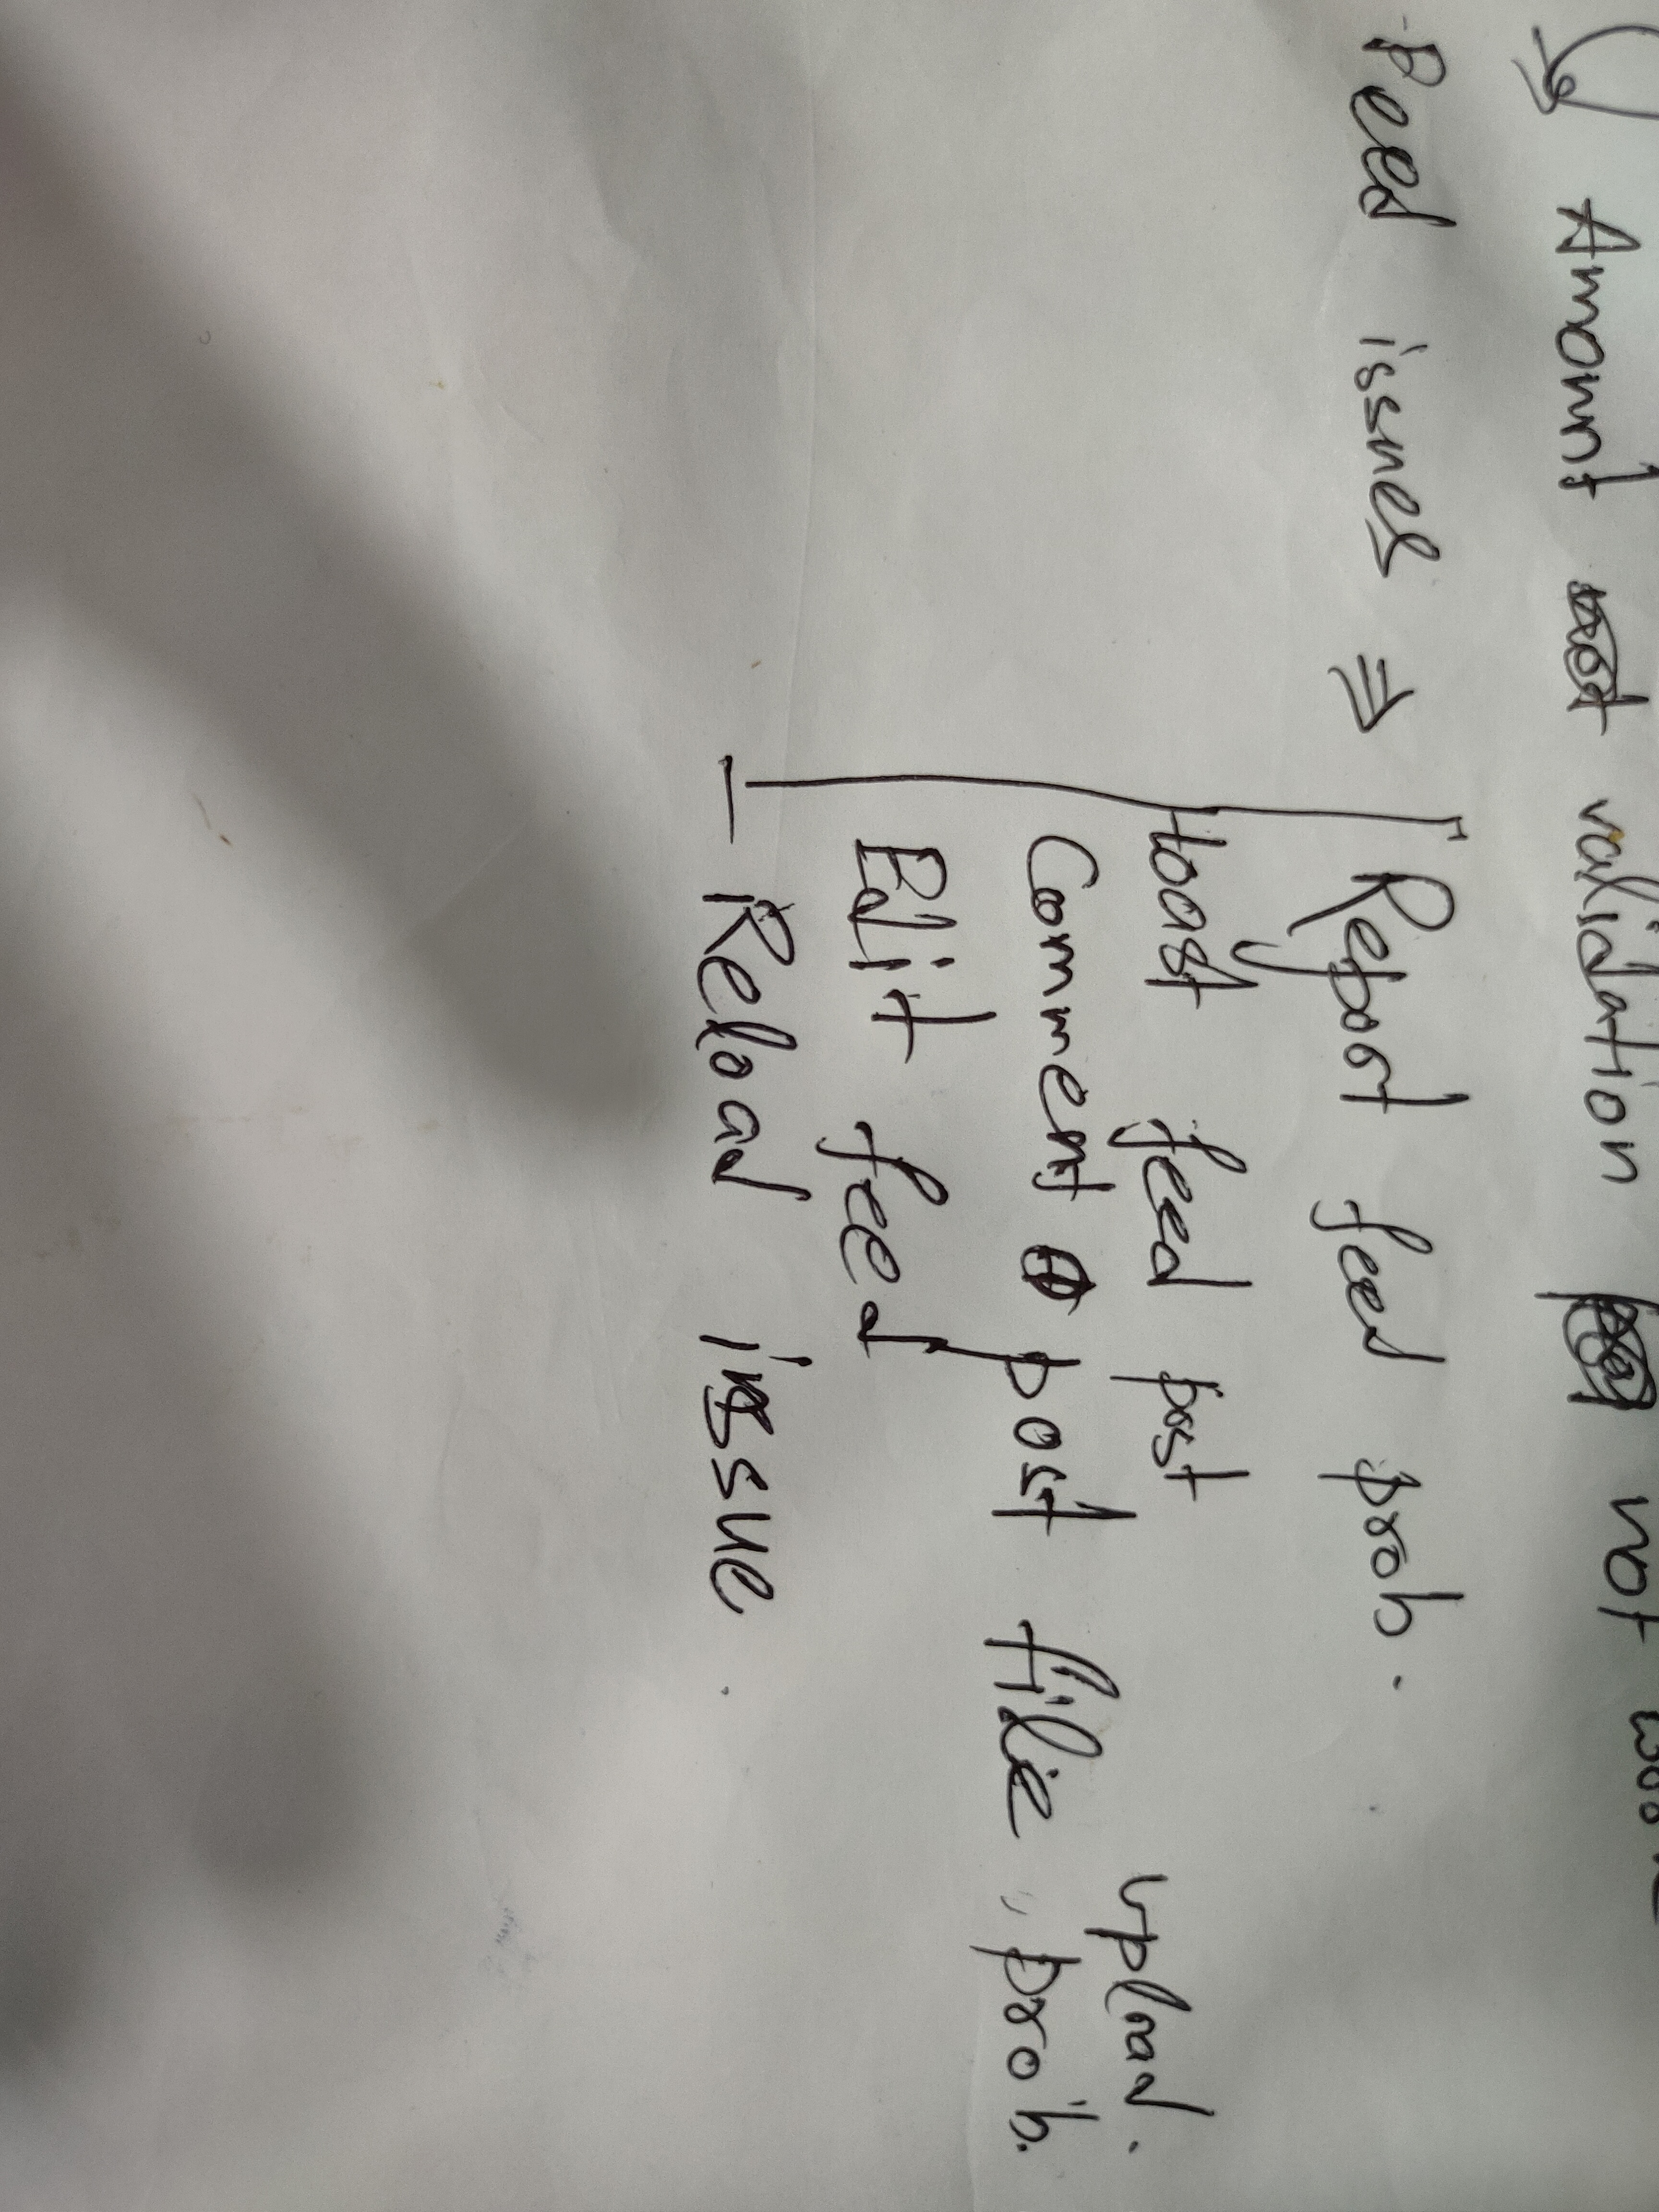 Amount validation not
Feed issues ⇒ Report feed prob.
toast feed post
Comment post file, prob.
upload.
Edit feed
— Reload issue.